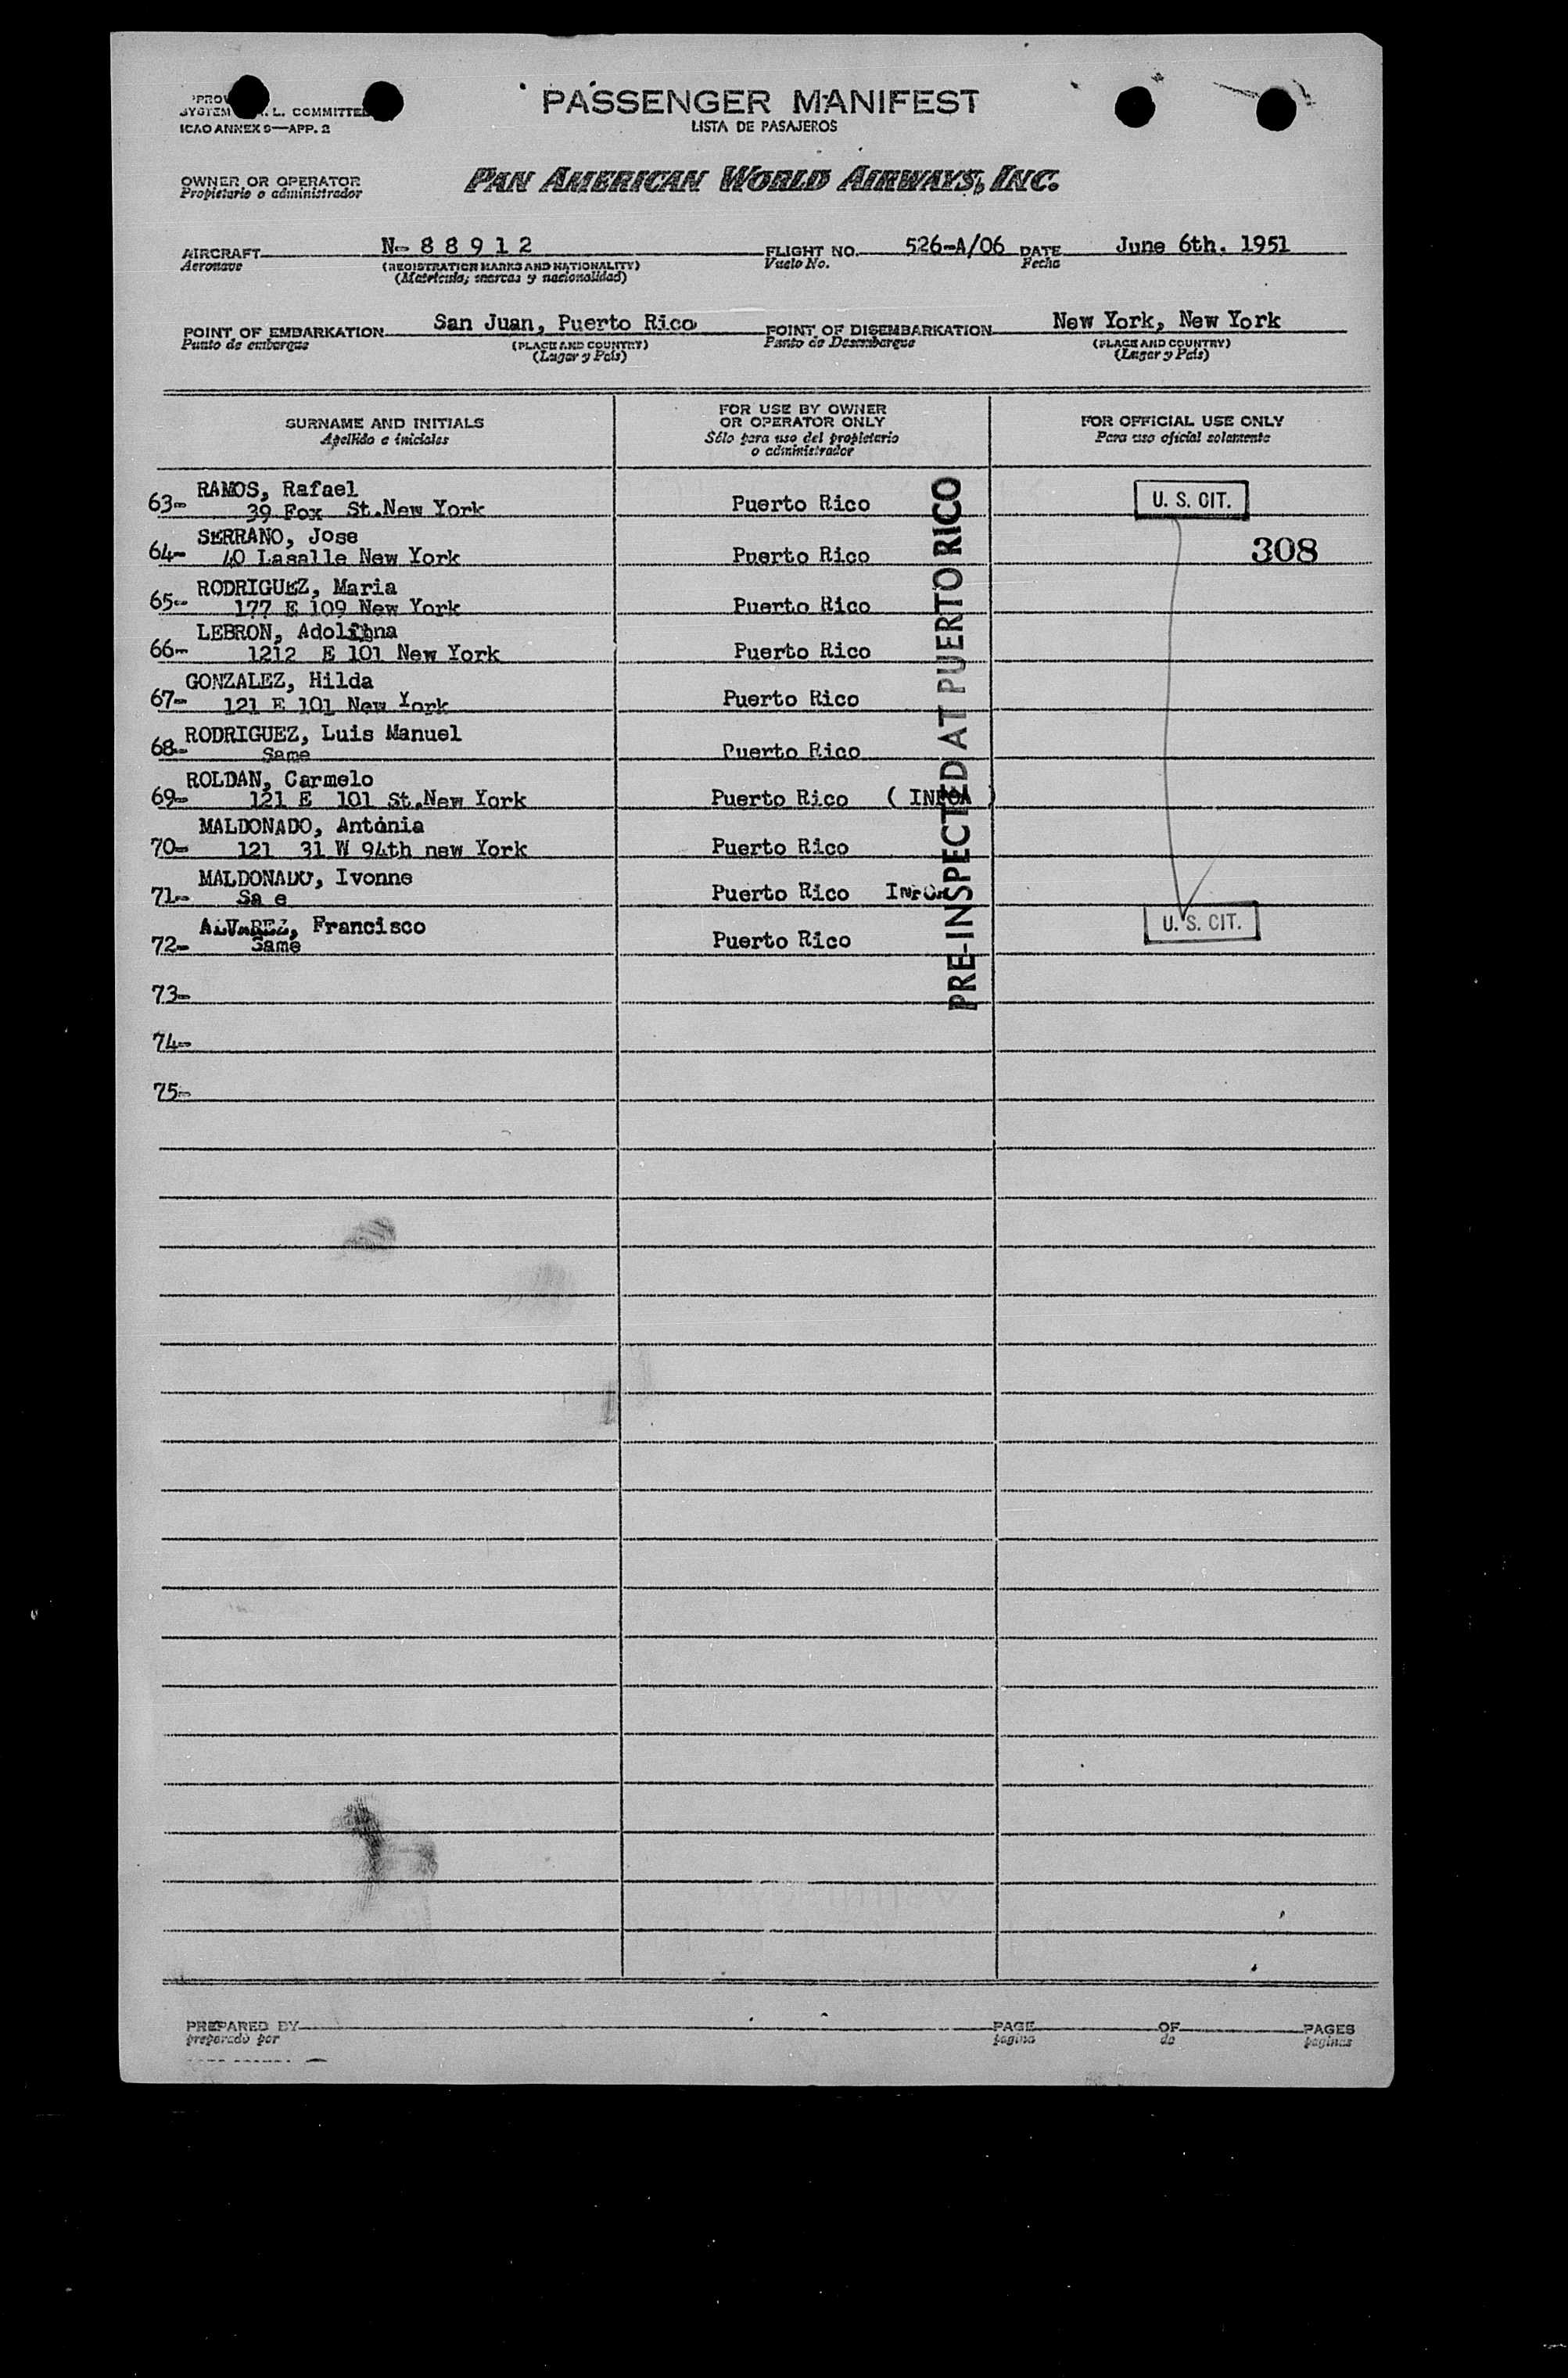 PASSENGER MANIFEST
LISTA DE PASAJEROS
L. COMMITTEE
ICAO ANNEX 9—APP. 2
OWNER OR OPERATOR
Propietario o administrador
PAN AMERICAN WORLD AIRWAYS, INC.
AIRCRAFT N- 8 8 9 1 2 FLIGHT NO. 526-A/06 DATE June 6th. 1951
Aeronave (REGISTRATION MARKS AND NATIONALITY) Vuelo No. Fecha
(Matricula; marcas y nacionalidad)
POINT OF EMBARKATION San Juan, Puerto Rico POINT OF DISEMBARKATION New York, New York
Punto de embarque (PLACE AND COUNTRY) Punto de Desembarque (PLACE AND COUNTRY)
(Lugar y País) (Lugar y País)
SURNAME AND INITIALS
Apellido e iniciales
FOR USE BY OWNER
OR OPERATOR ONLY
Sólo para uso del propietario
o administrador
FOR OFFICIAL USE ONLY
Para uso oficial solamente
RAMOS, Rafael
63- 39 Fox St.New York Puerto Rico U. S. CIT.
SERRANO, Jose
64- 40 Lasalle New York Puerto Rico 308
RODRIGUEZ, Maria
65- 177 E 109 New York Puerto Rico
LEBRON,
66- 1212 E 101 New York Puerto Rico
GONZALEZ, Hilda
67- 121 E 101 New York Puerto Rico
RODRIGUEZ, Luis Manuel
68- Same Puerto Rico
ROLDAN, Carmelo
69- 121 E 101 St.New York Puerto Rico
MALDONADO, Antonia
70- 121 31 W 94th new York Puerto Rico
MALDONADO, Ivonne
71- Sa e Puerto Rico
ALVAREZ, Francisco
72- Same Puerto Rico U. S. CIT.
73-
74-
75-
PRE-INSPECTED AT PUERTO RICO
PREPARED BY PAGE OF PAGES
preparado por pagina de paginas